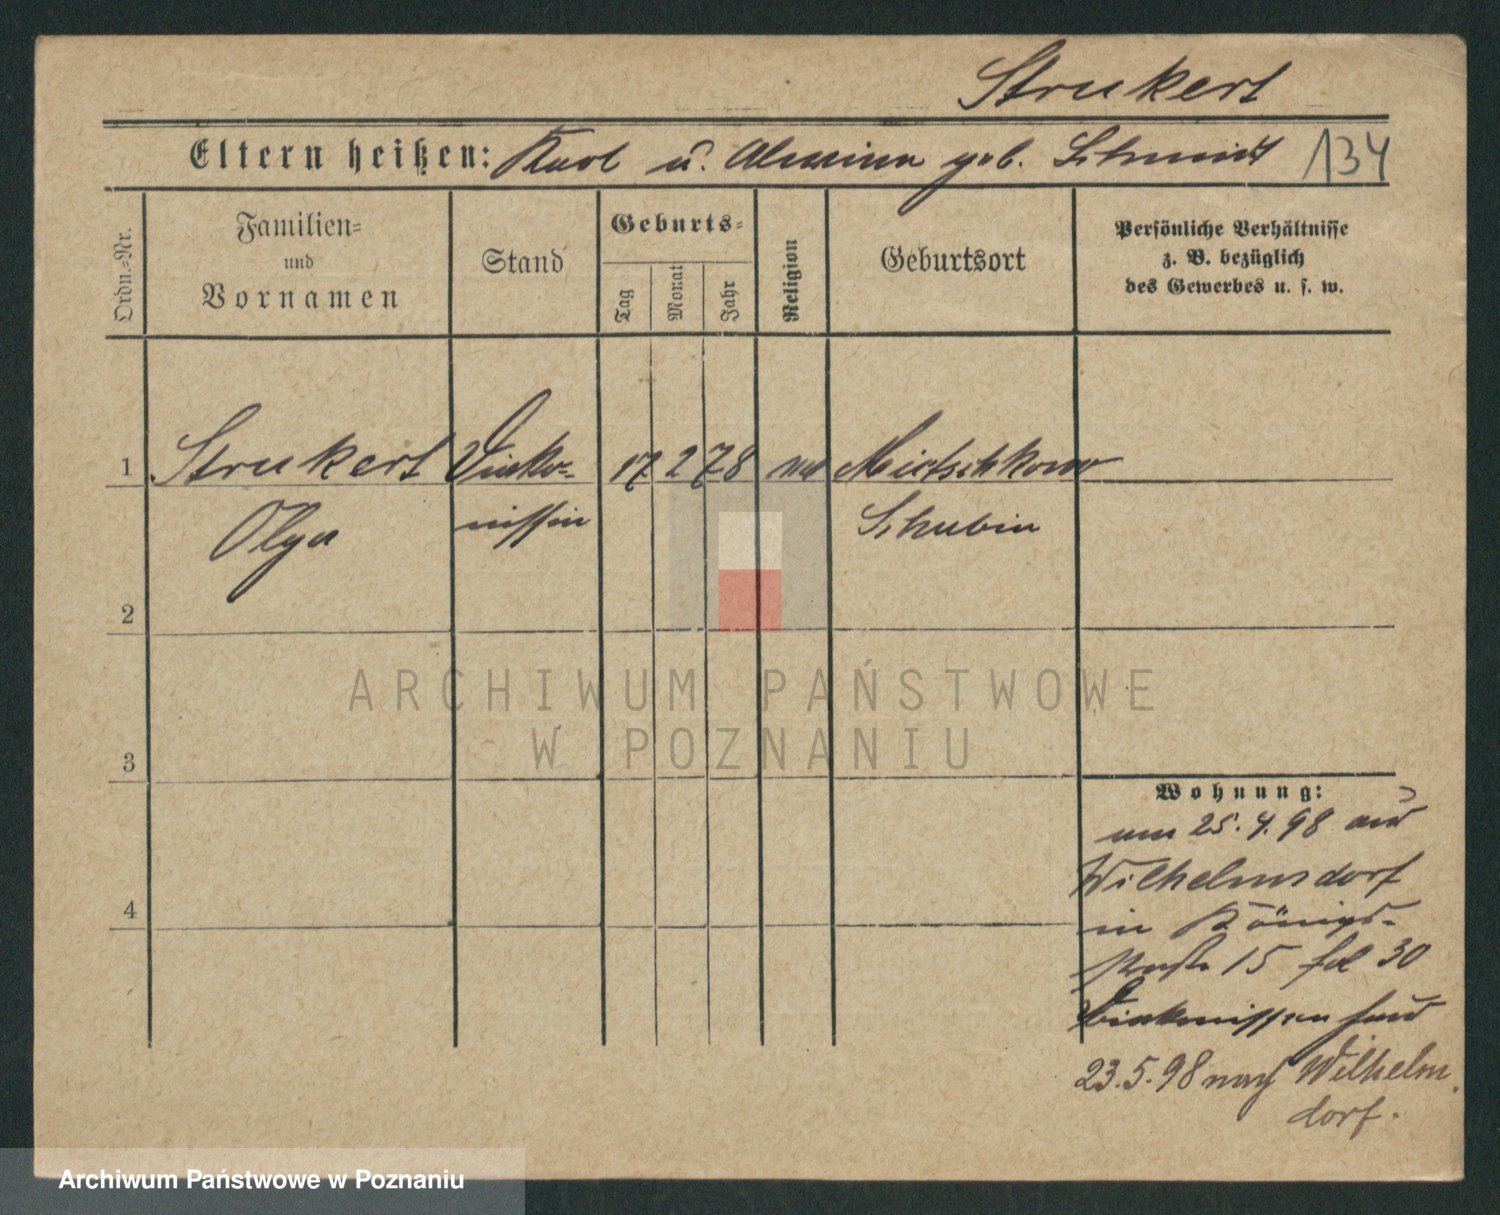 Strukert
Eltern heißen: Karl u. geb. Schmidt 134
Ordn.-Nr.
Familien-
und
Vornamen
Stand
Geburts-
Tag
Monat
Jahr
Religion
Geburtsort
Persönliche Verhältnisse
z. B. bezüglich
des Gewerbes u. s. w.
1 Strukert Diako- 17 2 78 Mietschkowo
Olga nissin Schubin
2
3
4
ARCHIWUM PAŃSTWOWE
W POZNANIU
Wohnung:
am 25.4.98 aus
Wilhelmsdorf
in Königs-
15 30
Diakonissen haus
23.5.98 nach Wilhelm
dorf.
Archiwum Państwowe w Poznaniu